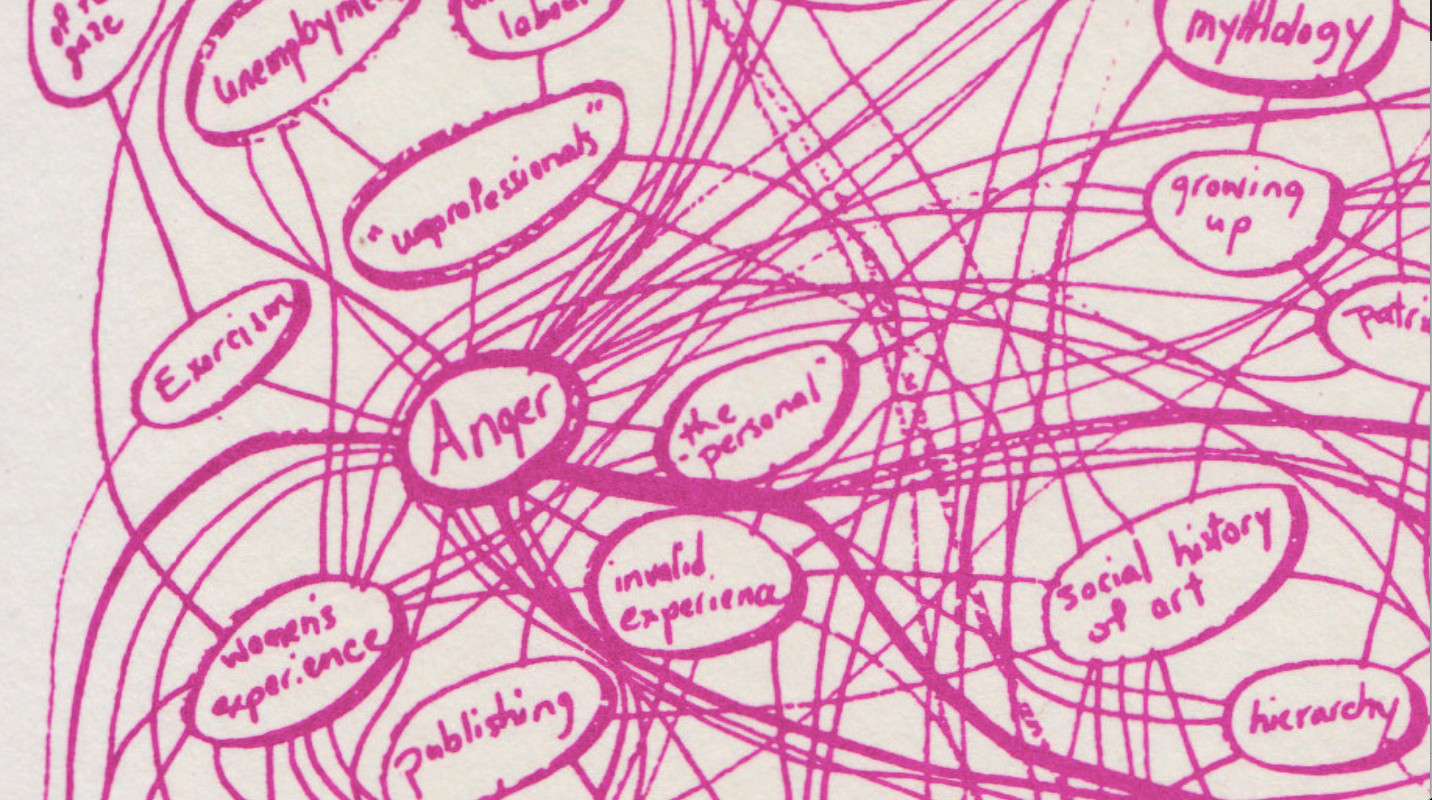 gaze
unemployment
labour
mythology
"unprofessionals"
growing
up
Exorcism
Anger
"the
personal"
invalid
experience
social history
of art
women's
experience
publishing
hierarchy